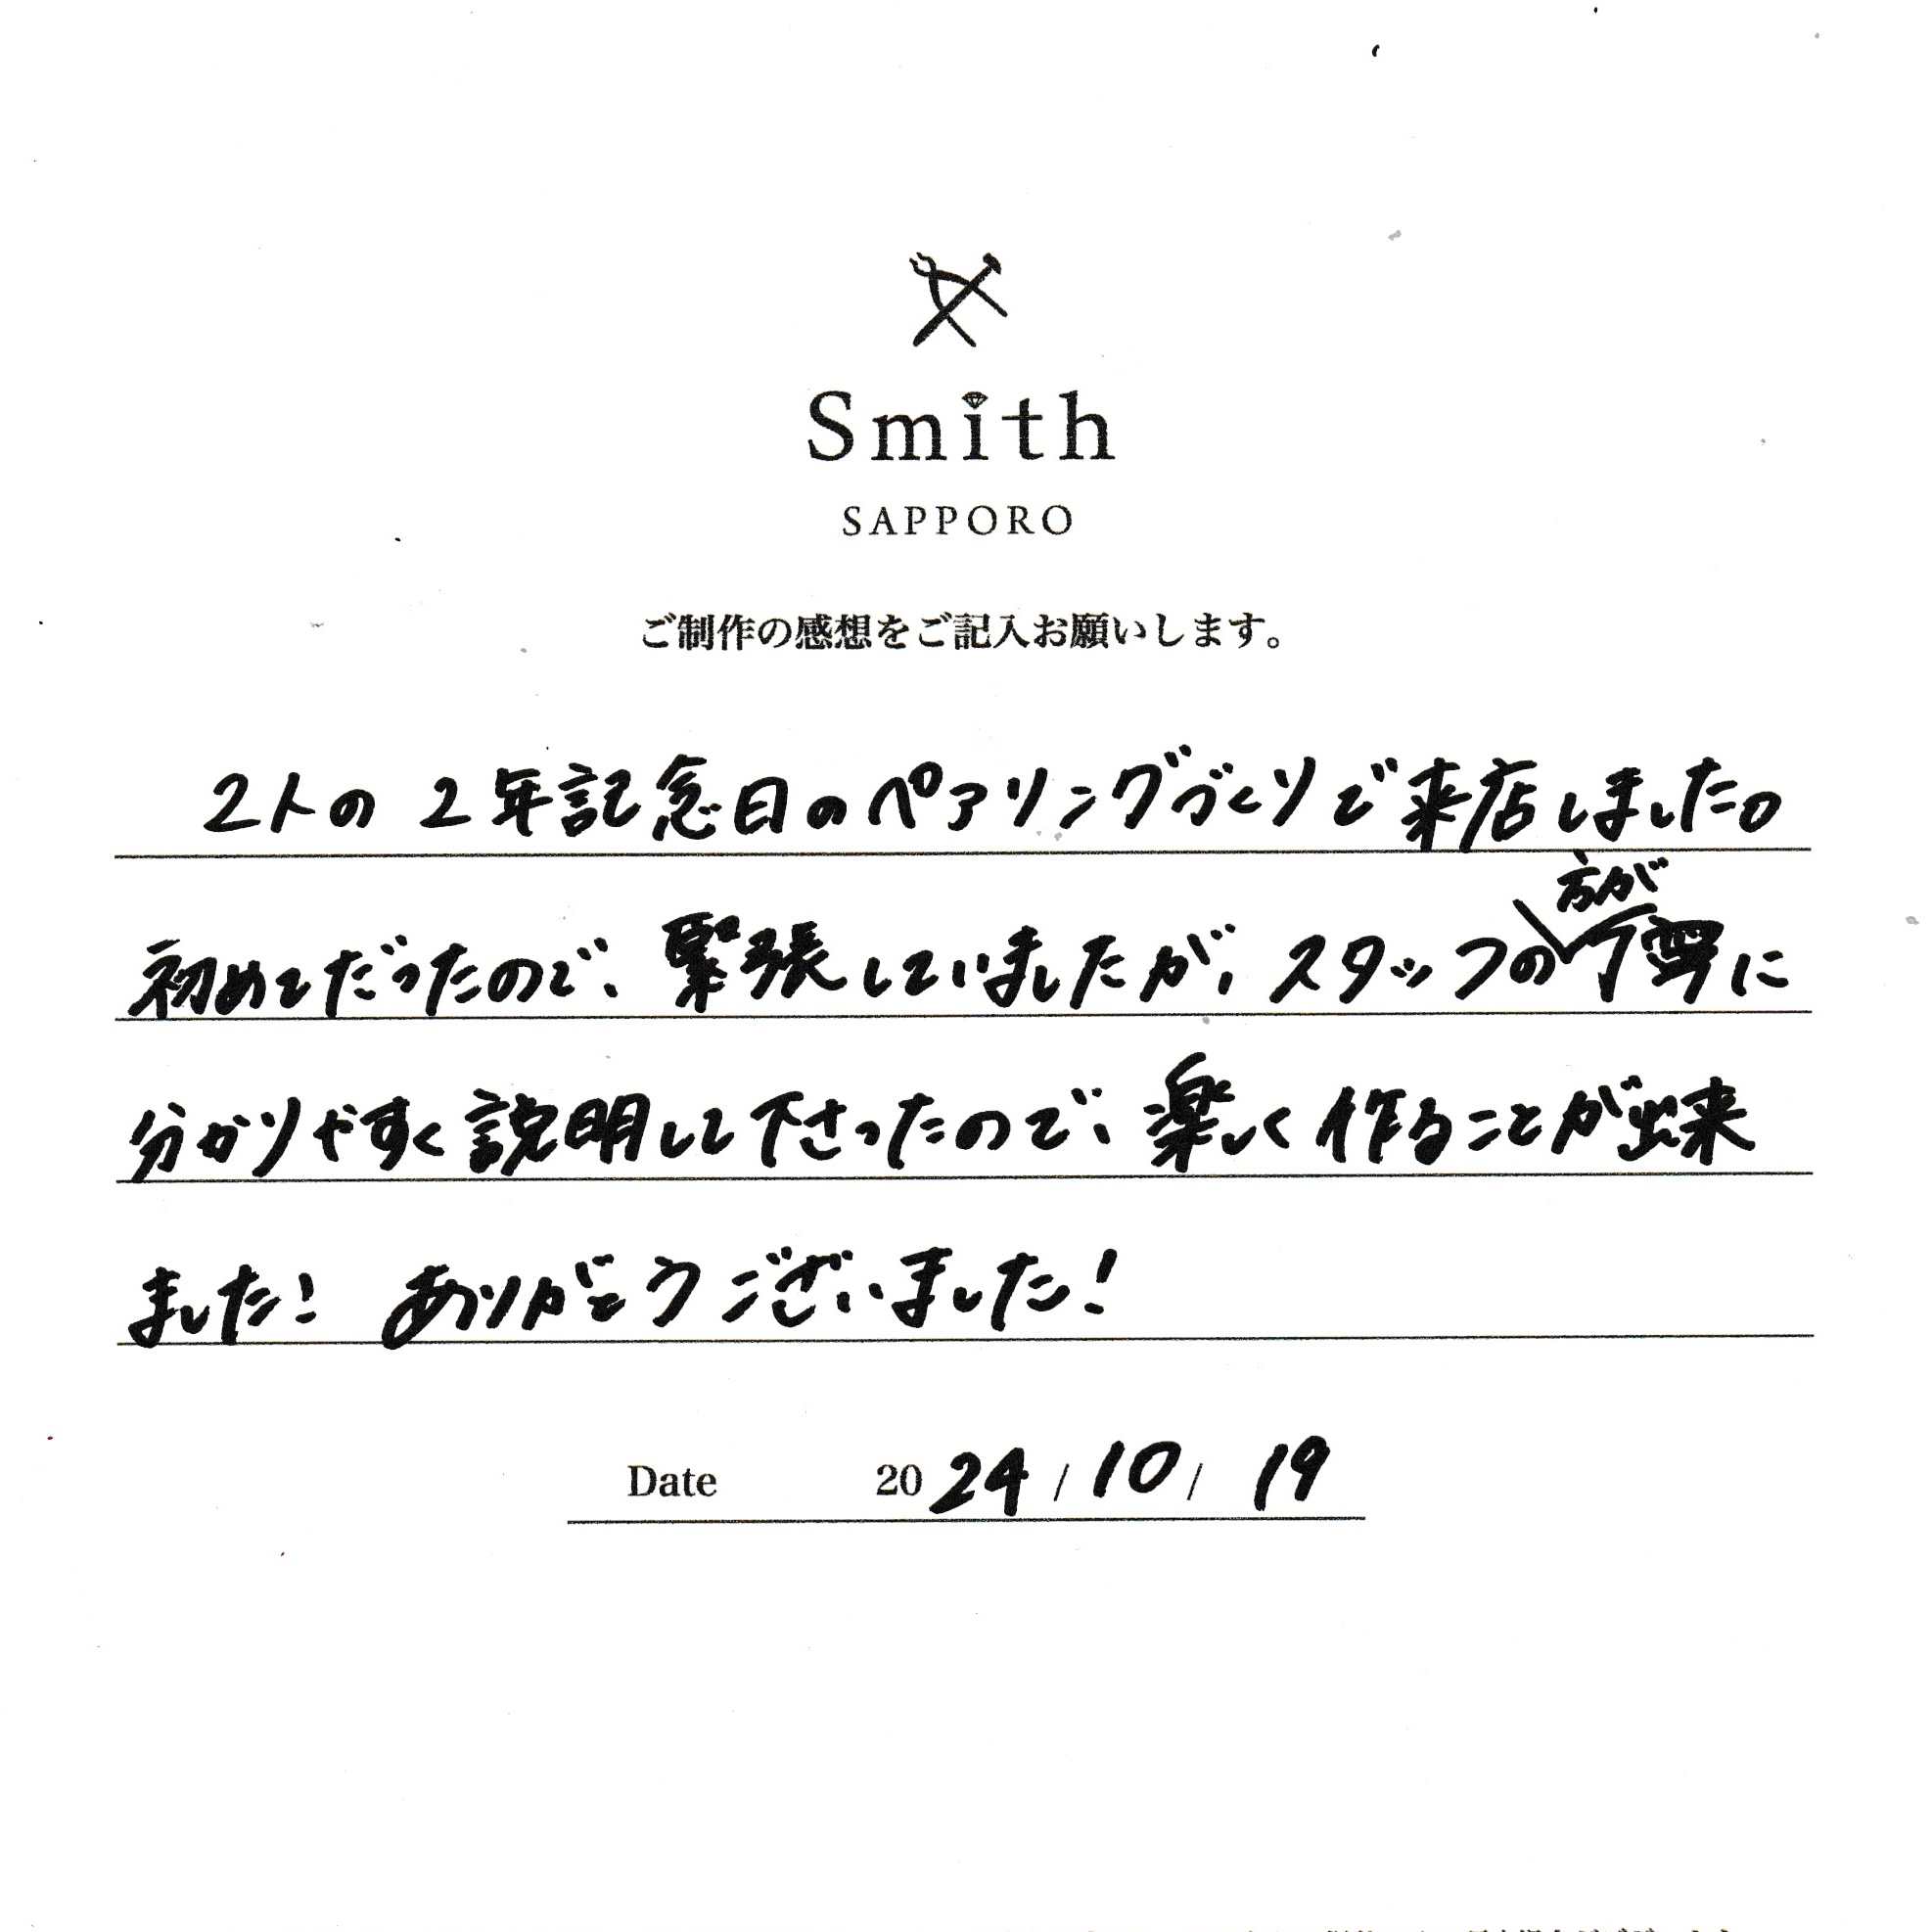 Smith
SAPPORO
ご制作の感想をご記入お願いします。
2人の2年記念日のペアリングづくりで来店しました。
初めてだったので、緊張していましたが、スタッフの方が丁寧に
分かりやすく説明して下さったので、楽しく作ることが出来
ました! ありがとうございました!
Date 2024/10/19